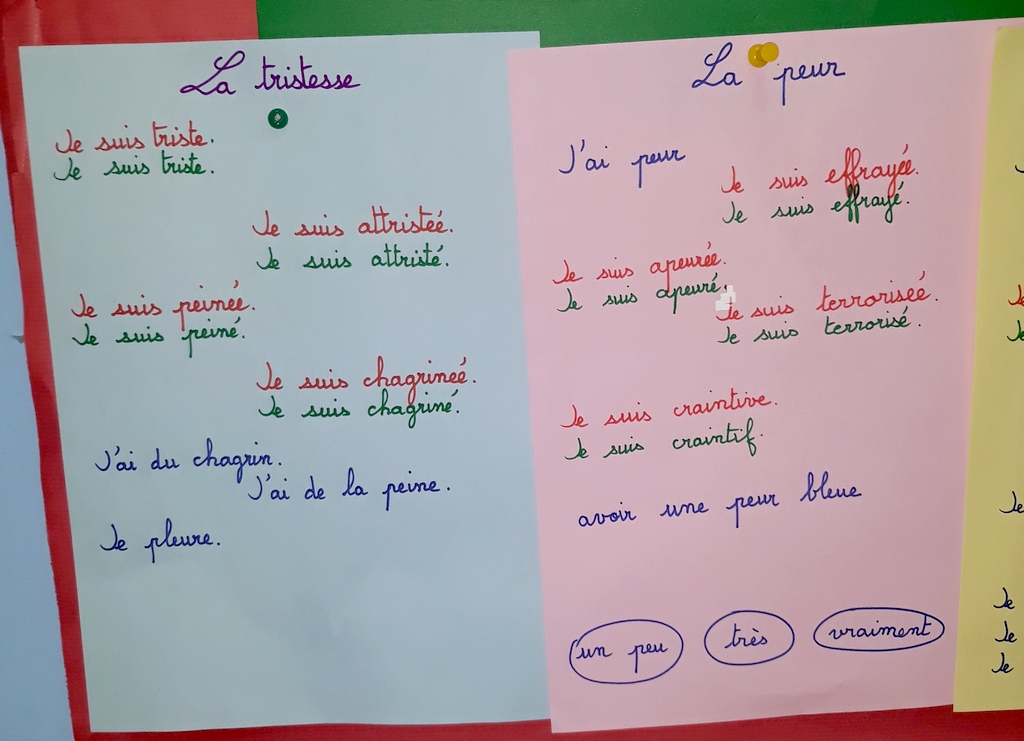 La tristesse
Je suis triste.
Je suis triste.
Je suis attristée.
Je suis attristé.
Je suis peinée.
Je suis peiné.
Je suis chagrinée.
Je suis chagriné.
J'ai du chagrin.
J'ai de la peine.
Je pleure.
La peur
J'ai peur
Je suis effrayée.
Je suis effrayé.
Je suis apeurée.
Je suis apeuré.
Je suis terrorisée.
Je suis terrorisé.
Je suis craintive.
Je suis craintif.
avoir une peur bleue
un peu
très
vraiment
Je
Je
Je
Je
Je
Je